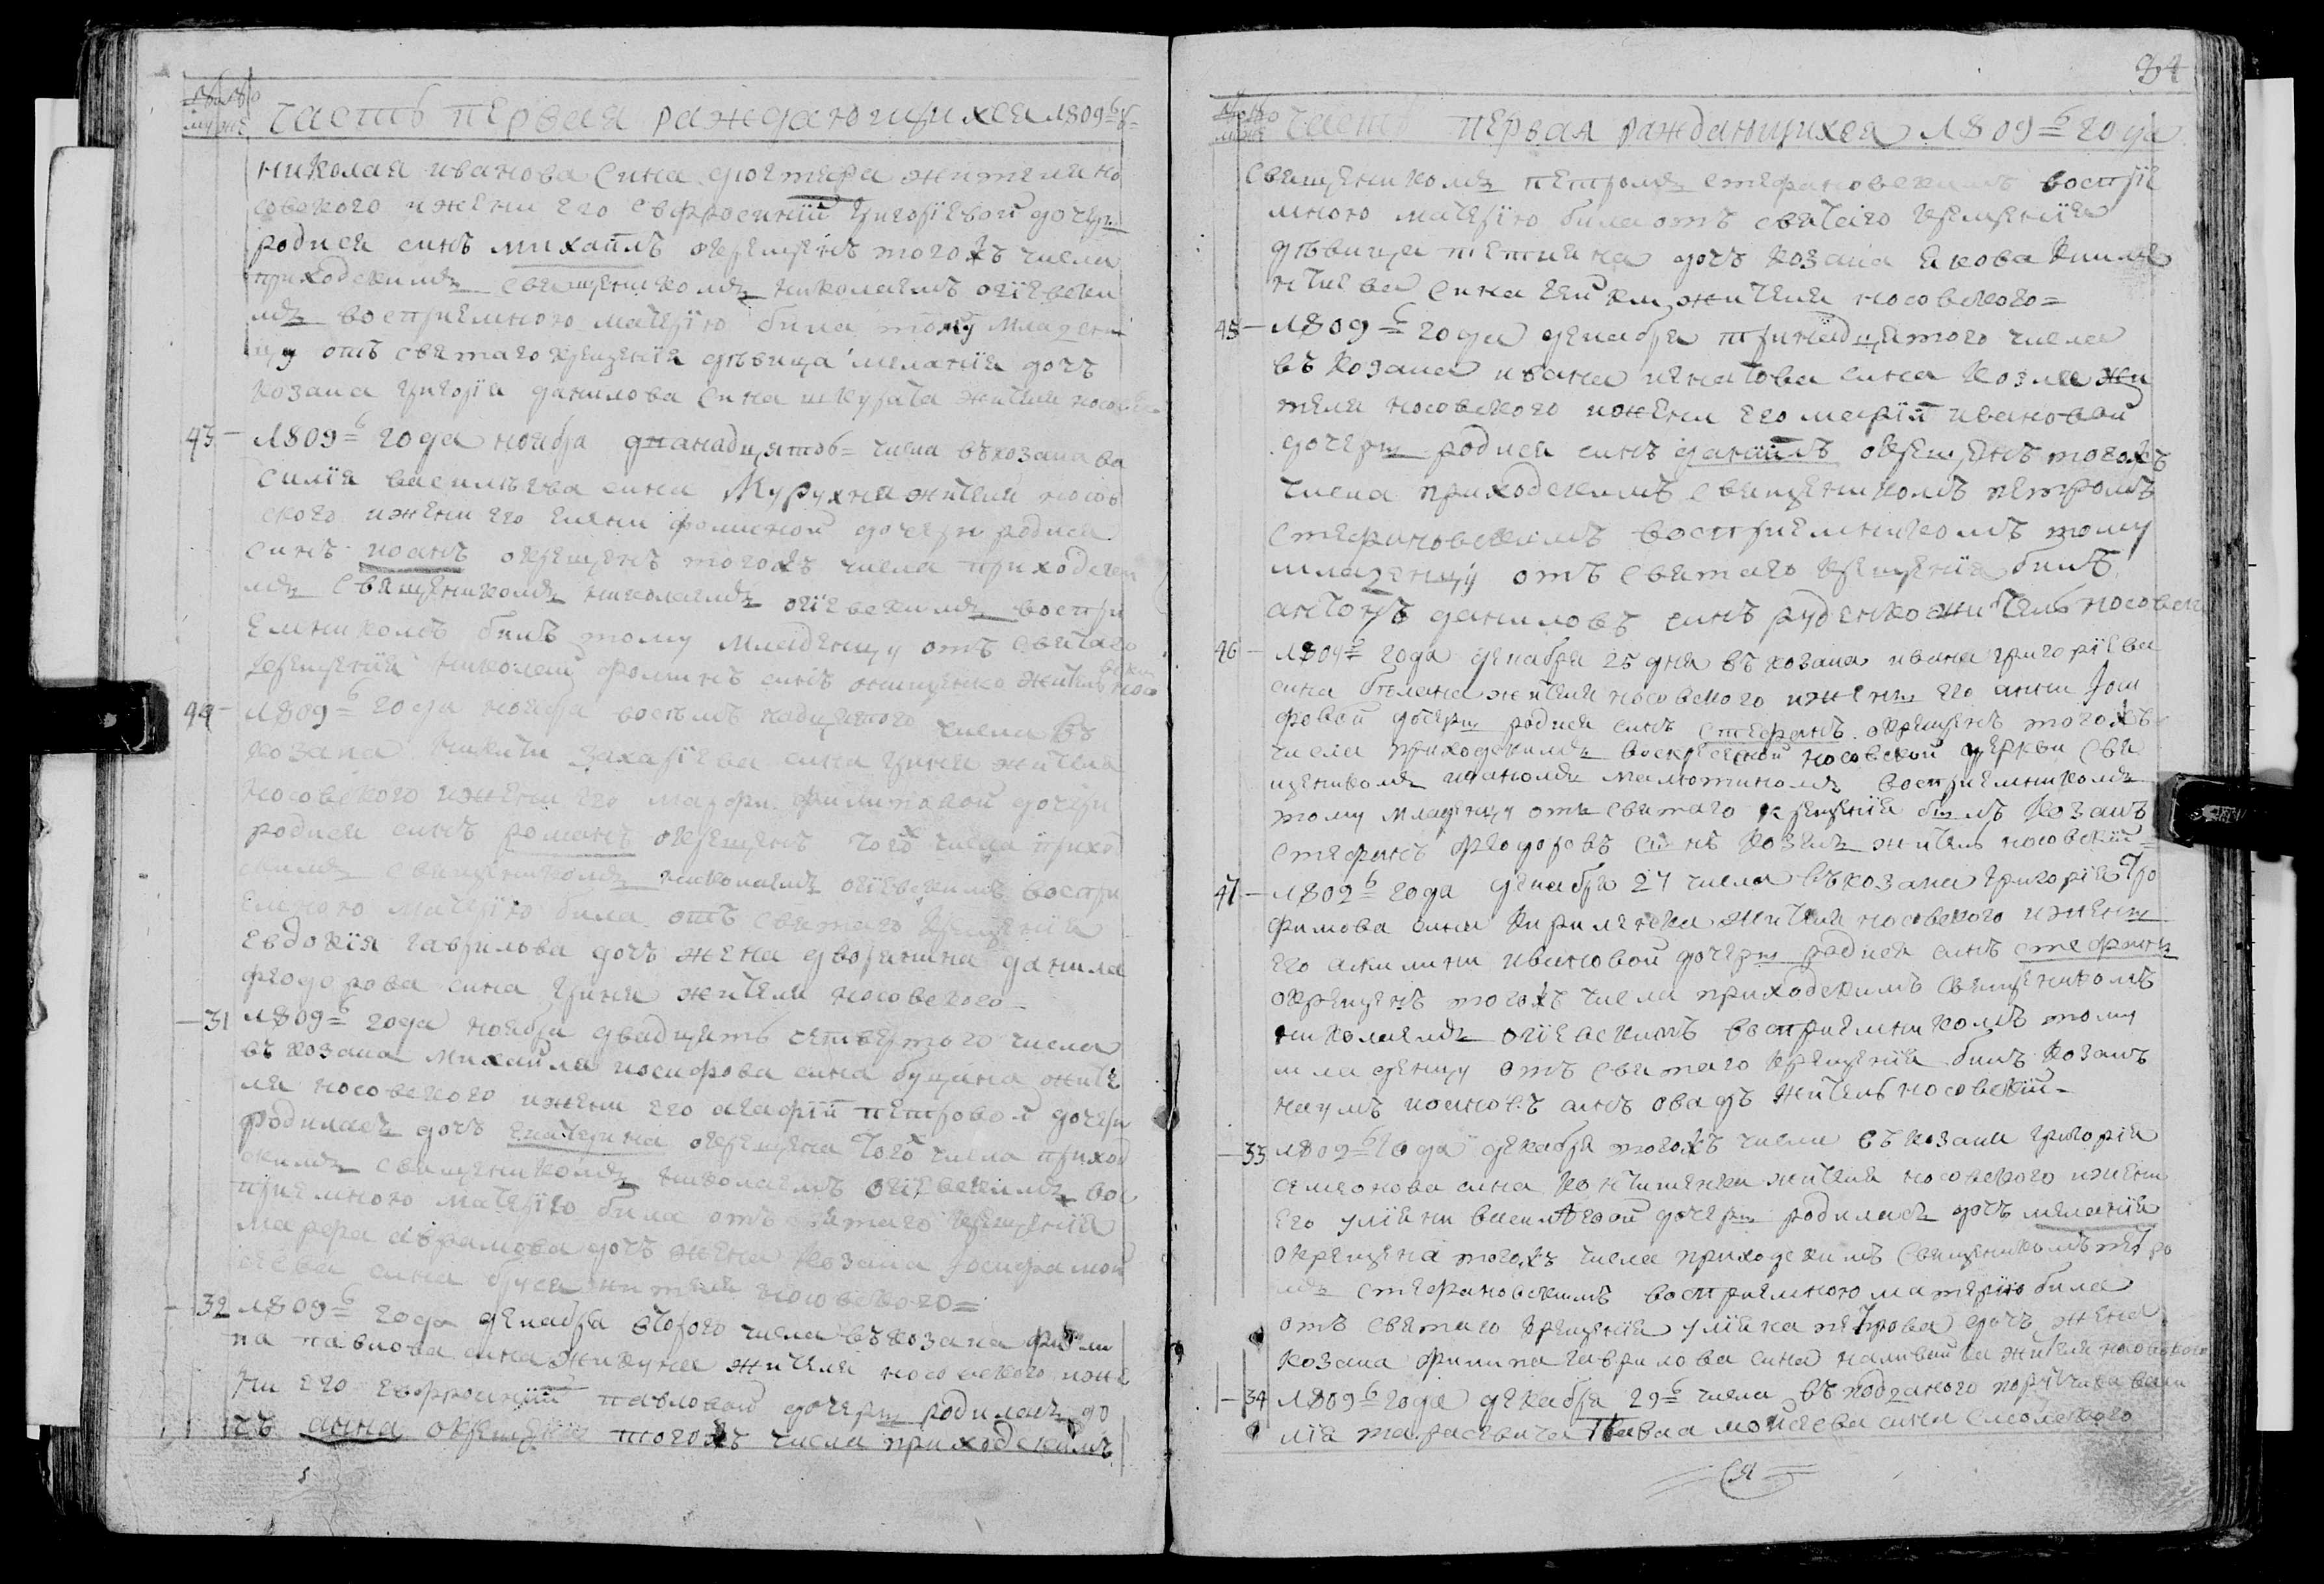 Часть первая раждающихся 1809 г
николая иванова сина жителя но
совского и жени его євфросинїи григорїевой дочери
родися синъ михаилъ окрещенъ тогожъ числа
приходскимъ священикомъ николаемъ огїевски
мъ восприемною матерїю била тому младен
цу отъ святаго крещенїя дѣвица меланїя дочъ
козака григорїя данилова сина шкурата жителя носовск
43 1809 года ноября дванадцятоб числа въ козака ва
силїя василъева сина жителя носов
ского и жени его елени фоминой дочери родися
синъ иоанъ окрещенъ тогожъ числа приходски
мъ священикомъ николаемъ огїевскимъ воспри
емникомъ билъ тому младенцу отъ святаго
крещенїя николай фоминъ синъ онищенко житель носо
вски
44 1809 года ноября восемъ надцятого числа въ
козака никити захарїева сина грини жителя
носовского и жени его марфи филиповой дочери
родися синъ романъ окрещенъ того числа приход
скимъ священикомъ николаемъ огїевскимъ воспри
емною матерїю била отъ святаго крещенїя
євдокїя гаврилова дочъ жена дворянина данила
феодорова сина грини жителя носовского
31 1809 года ноября двадцять четвертого числа
въ козака михаила иосифова сина буцана жите
ля носовского и жени его агафїи петровой дочери
родиласъ дочъ екатерина окрещена того числа приход
скимъ священикомъ николаемъ огїевскимъ вос
приемною матерїю била отъ святаго крещенїя
марфа аврамова дочъ жена козака иосифа мои
сеева сина буся жителя носовского
32 1809 года декабра второго числа въ козака фили
па павлова сина жикуна жителя носовского и же
ни его євфросинїи павловой дочери родиласъ до
чъ анна окрещена тогожъ числа приходскимъ

84
Часть первая раждающихся 1809 года
священикомъ петромъ стефановскимъ воспрїе
мною матерїю била отъ святаго крещенїя
дѣвица татияна дочъ козака якова климе
нтиева сина жителя носовского
45 1809 года декабря тринадцятого числа
въ козака ивана игнатова сина козла жи
теля носовского и жени его марїи ивановой
дочери родися синъ данїилъ окрещенъ тогожъ
числа приходскимъ священикомъ петромъ
стефановскимъ восприемникомъ тому
младенцу отъ святаго крещенїя билъ
антонъ даниловъ синъ руденко житель носовски
46 1809 года декабря 25 дня въ козака ивана григорїева
сина билана жителя носовского и жени его анни иоси
фовой дочери родися синъ стефанъ окрещенъ тогожъ
числа приходскимъ воскресенской носовской церкви свя
щеникомъ иоаномъ восприемникомъ
тому младенцу отъ святаго крещенїя билъ козакъ
стефанъ феодоровъ синъ козелъ житель носовскїй
47 1809 года декабря 27 числа въ козака григорїя тро
фимова сина кириленка жителя носовского и жени
его акилини ивановой дочери родися синъ стефанъ
окрещенъ тогожъ числа приходскимъ священикомъ
николаемъ огїевскимъ восприемникомъ тому
младенцу отъ святаго крещенїя билъ козакъ
наумъ иоановъ синъ овадъ житель носовскїй
33 1809 года декабря тогожъ числа въ козака григорїя
семеонова сина жителя носовского и жени
его улїяни василѣевой дочери родиласъ дочъ меланїя
окрещена тогожъ числа приходскимъ священикомъ петро
мъ стефановскимъ восприемною матерїю била
отъ святаго крещенїя улїяна петрова дочъ жена
козака филипа гаврилова сина наливайка жителя носовского
34 1809 года декабря 29 числа въ подданого поручика васи
лїя тарасевича павла моисеева сина смолского